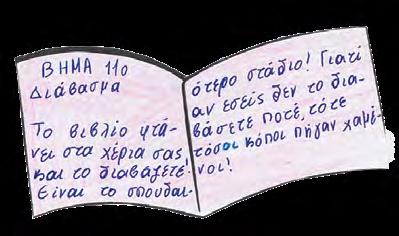 ΒΗΜΑ 11ο
Διάβασμα
Το βιβλίο φτά-
νει στα χέρια σας
και το διαβάζετε!
Είναι το σπουδαι-
ότερο στάδιο! Γιατί
αν εσείς δεν το δια-
βάσετε ποτέ, τότε
τόσοι κόποι πήγαν χαμέ-
νοι!